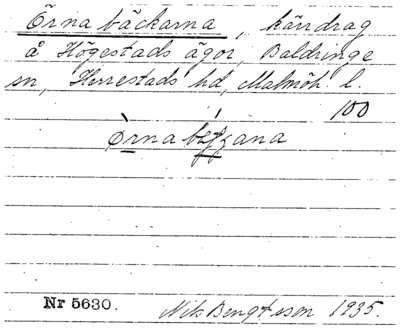 Örnabäckarna, kärrdrag
å Högestads ägor, Baldringe
sn, Herrestads hd, Malmöh. l.
100
Nr 5630. Nils Bengtsson 1935.